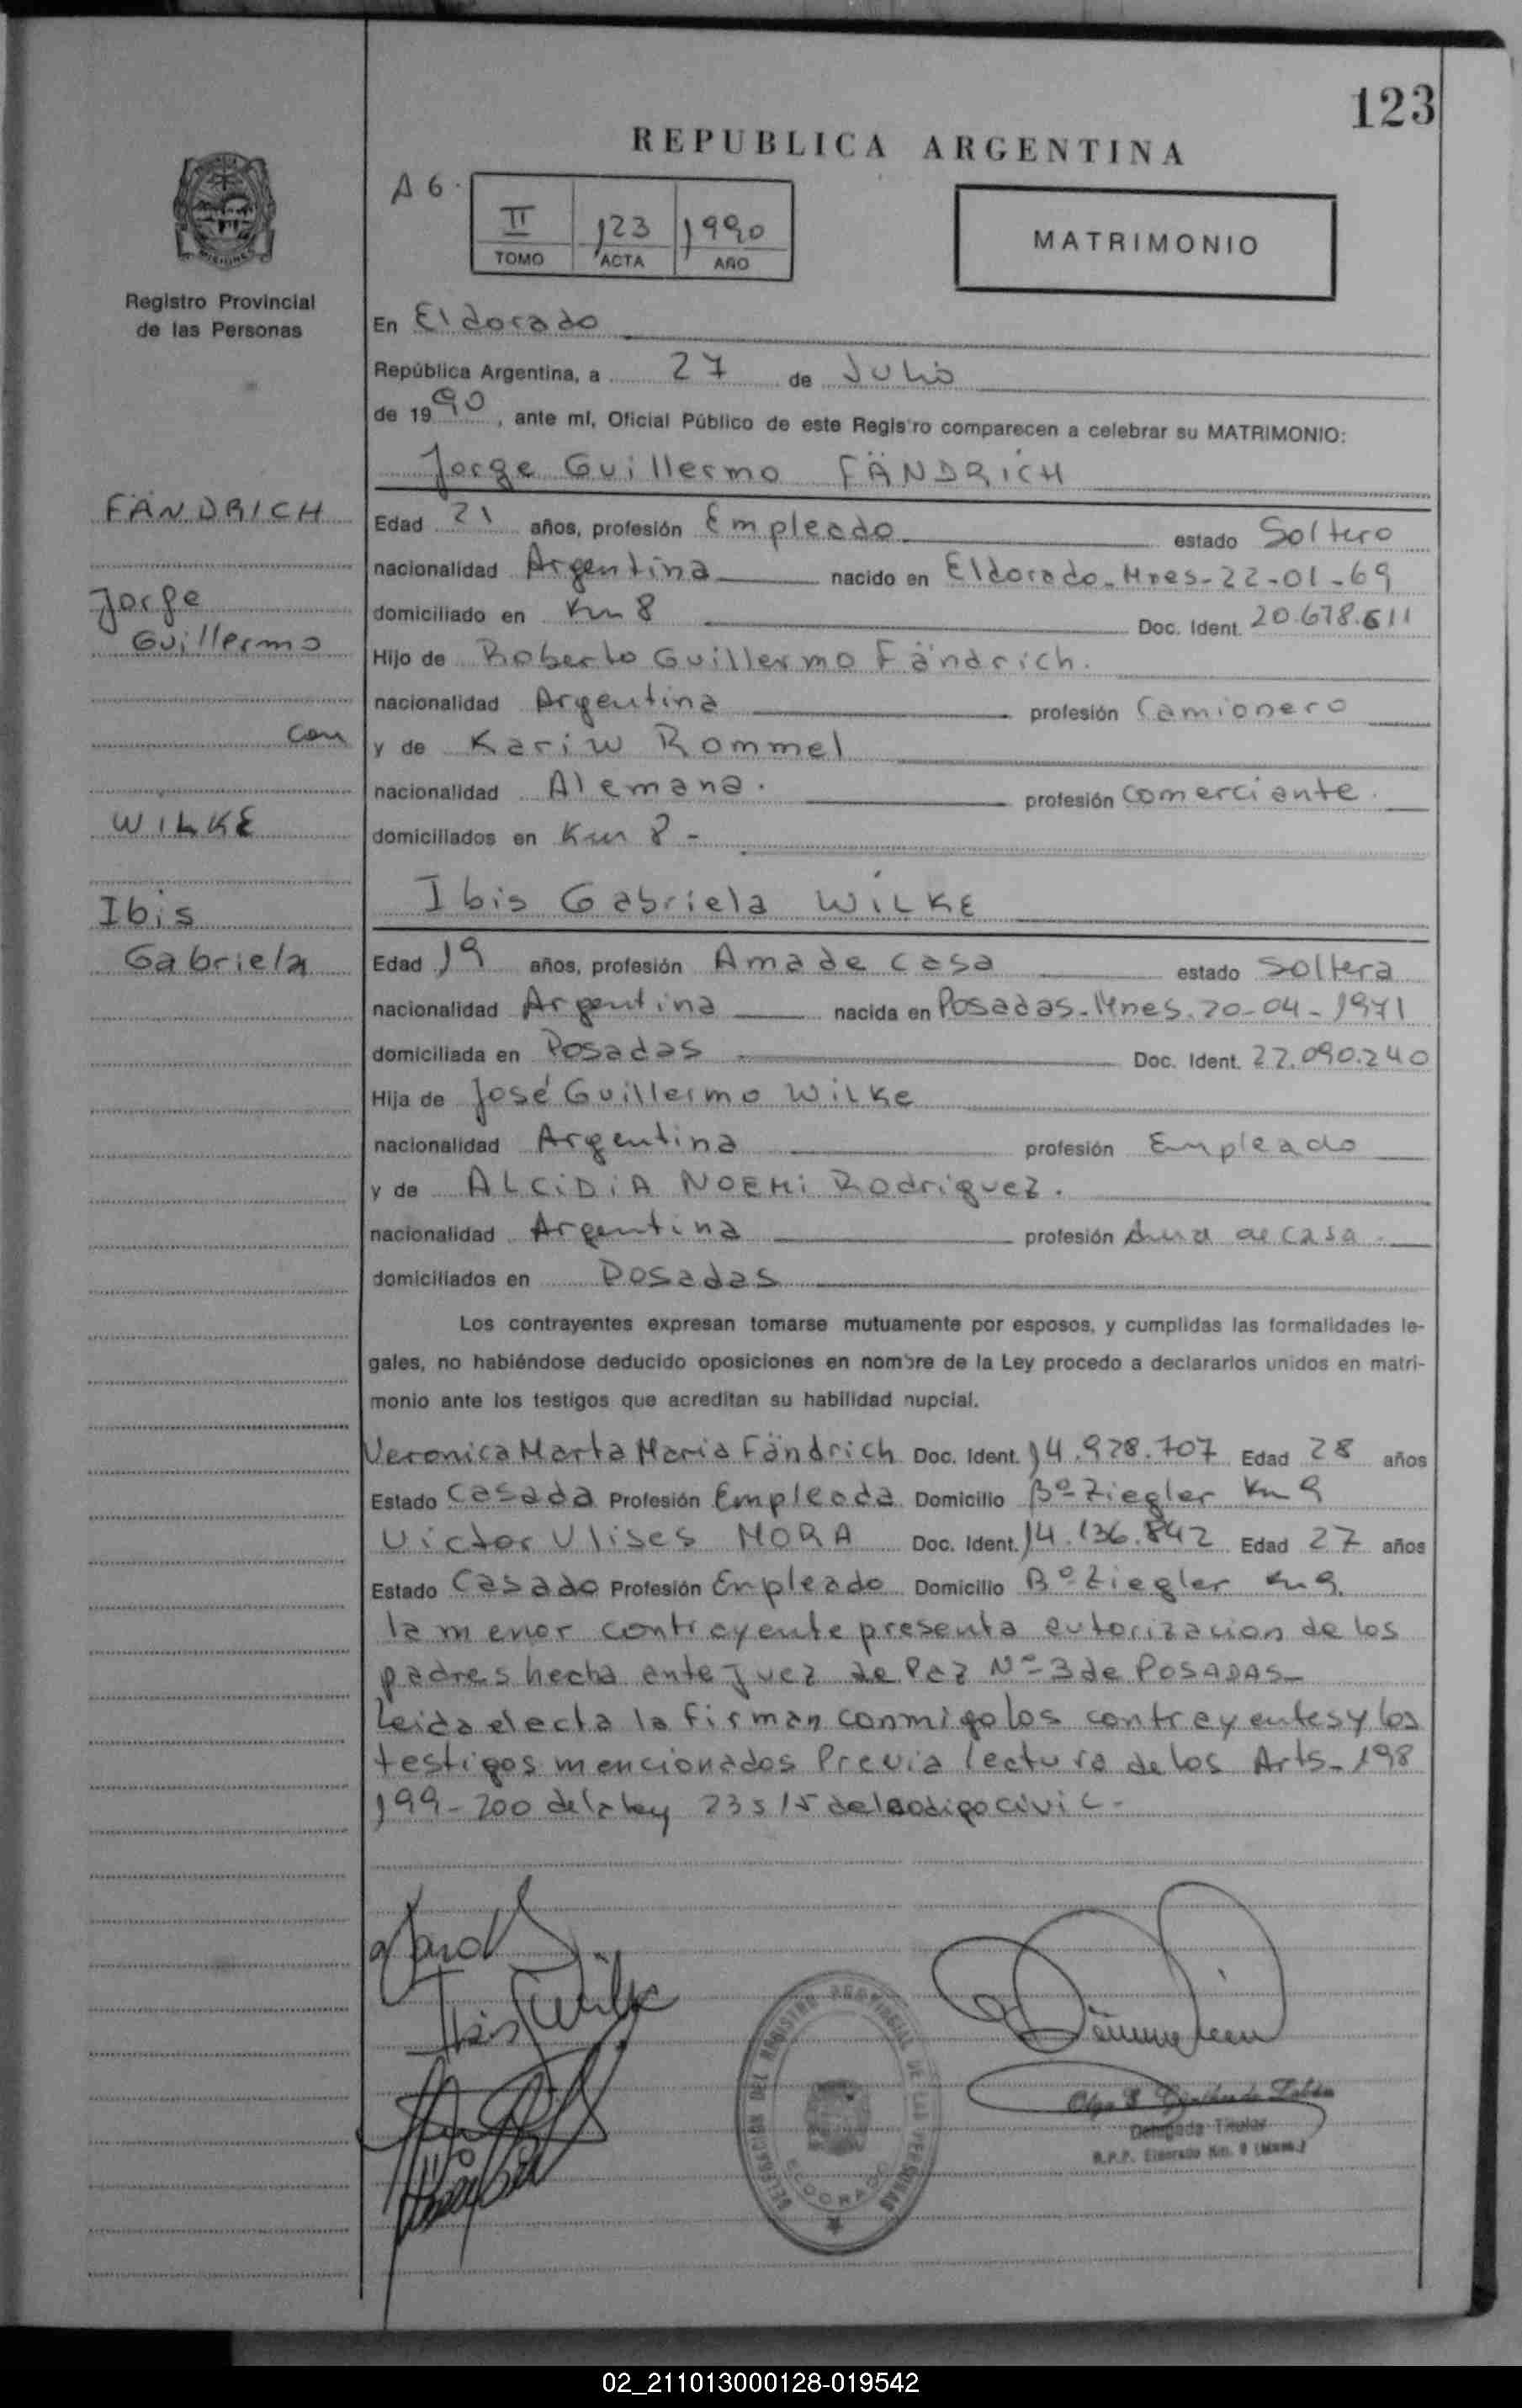 123
REPUBLICA ARGENTINA
A 6.
II 123 1990
TOMO ACTA AÑO
MATRIMONIO
MISIONES
Registro Provincial
de las Personas
En Eldorado
República Argentina, a 27 de Julio
de 1990, ante mí, Oficial Público de este Registro comparecen a celebrar su MATRIMONIO:
Jorge Guillermo FÄNDRICH
FÄNDRICH
Jorge
Guillermo
con
WILKE
Ibis
Gabriela
Edad 21 años, profesión Empleado estado Soltero
nacionalidad Argentina nacido en Eldorado-Mnes-22-01-69
domiciliado en Km 8 Doc. Ident. 20.678.611
Hijo de Roberto Guillermo Fändrich.
nacionalidad Argentina profesión Camionero
y de Karin Rommel
nacionalidad Alemana. profesión comerciante.
domiciliados en Km 8 -
Ibis Gabriela WILKE
Edad 19 años, profesión Ama de casa estado Soltera
nacionalidad Argentina nacida en Posadas-Mnes. 20-04-1971
domiciliada en Posadas Doc. Ident. 22.090.240
Hija de José Guillermo Wilke
nacionalidad Argentina profesión Empleado
y de ALCIDIA NOEMI Rodriguez.
nacionalidad Argentina profesión Ama de casa.
domiciliados en Posadas
Los contrayentes expresan tomarse mutuamente por esposos, y cumplidas las formalidades le-
gales, no habiéndose deducido oposiciones en nombre de la Ley procedo a declararlos unidos en matri-
monio ante los testigos que acreditan su habilidad nupcial.
Veronica Marta Maria Fändrich Doc. Ident. 14.928.707 Edad 28 años
Estado Casada Profesión Empleada Domicilio Bº Ziegler Km 9
Victor Ulises MORA Doc. Ident. 14.136.842 Edad 27 años
Estado Casado Profesión Empleado Domicilio Bº Ziegler Km 9.
la menor contrayente presenta autorizacion de los
padres hecha ante Juez de Paz Nº-3 de POSADAS-
Leida el acta la firman conmigo los contrayentes y los
testigos mencionados Previa lectura de los Arts- 198
199-200 de la ley 23515 del codigo civic-
Ibis Wilke
DELEGACION DEL REGISTRO PROVINCIAL DE LAS PERSONAS
ELDORADO
Delegada Titular
R.P.P. Eldorado Km. 9 (Mnes.)
02_211013000128-019542